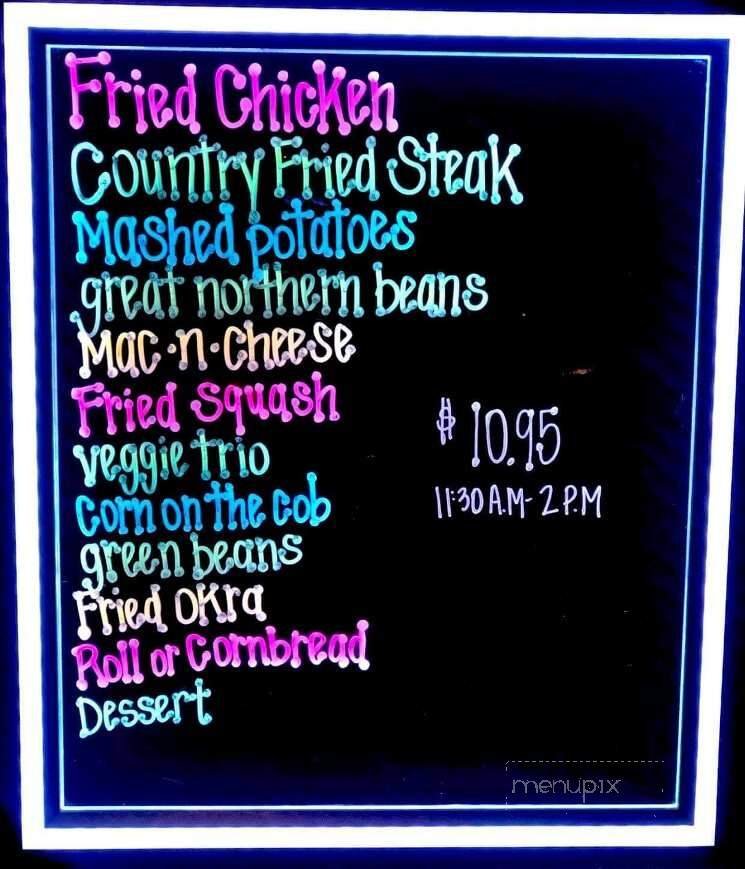 Fried Chicken
Country Fried Steak
Mashed potatoes
great northern beans
Mac·n·Cheese
Fried Squash
veggie trio
Corn on the cob
green beans
Fried OKra
Roll or Cornbread
Dessert
$ 10.95
11:30 A.M- 2 P.M
menupix